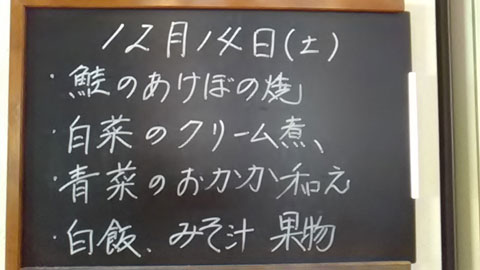 12月14日(土)
・鮭のあけぼの焼
・白菜のクリーム煮、
・青菜のおかか和え
・白飯、みそ汁 果物